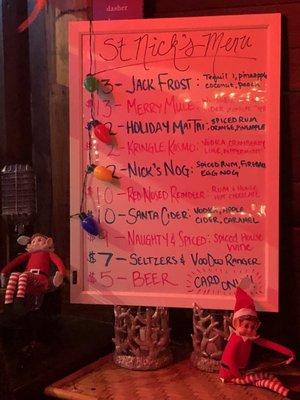 dasher
St Nick's Menu
$13- Jack Frost: Tequila, pineapple
coconut, peach
$13- Merry Mule:
$12- Holiday Mai Tai: Spiced Rum
Orange, Pineapple
$12- Kringle Kosmo: Vodka, Cranberry
Lime, Peppermint
$12- Nick's Nog: Spiced Rum, Fireball
Egg Nog
$10- Red Nosed Reindeer: Rum &
Hot Chocolate
$10- Santa Cider: Vodka, Apple
Cider, Caramel
$9- Naughty & Spiced: Spiced House
Wine
$7- Seltzers & VooDoo Ranger
$5- Beer
Card Only